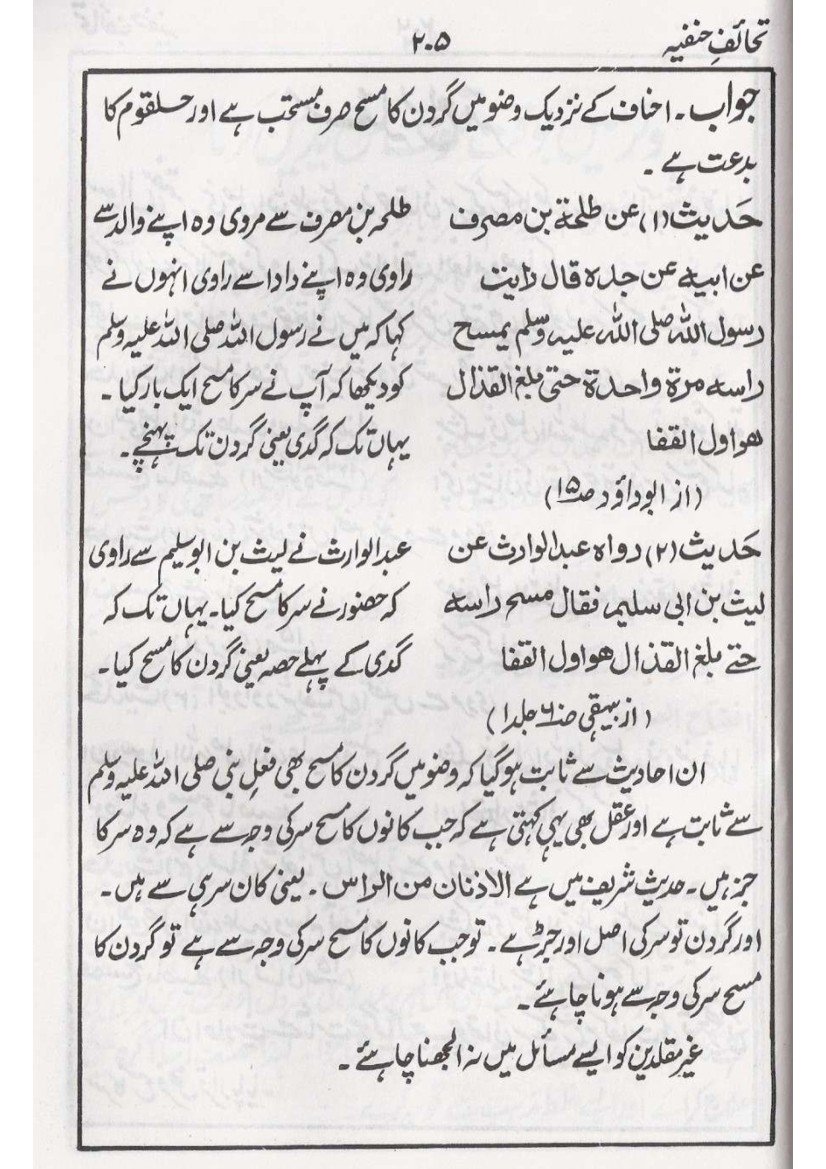 تحائفِ حنفیہ
۲۰۵
جواب۔ احناف کے نزدیک وضو میں گردن کا مسح صرف مستحب ہے اور حلقوم کا
بدعت ہے۔
حَدیث (۱) عن طلحة بن مصرف
عن ابیہ عن جدہ قال رایت
رسول اللہ صلی اللہ علیہ وسلم یمسح
راسہ مرۃ واحدۃ حتی بلغ القذال
ھو اول القفا
طلحہ بن مصرف سے مروی وہ اپنے والد سے
راوی وہ اپنے دادا سے راوی انہوں نے
کہا کہ میں نے رسول اللہ صلی اللہ علیہ وسلم
کو دیکھا کہ آپ نے سر کا مسح ایک بار کیا۔
یہاں تک کہ گدی یعنی گردن تک پہنچے۔
(از ابوداؤد صـ۱۵)
حَدیث (۲) رواہ عبدالوارث عن
لیث بن ابی سلیم فقال مسح راسہ
حتے بلغ القذال ھو اول القفا
عبدالوارث نے لیث بن ابوسلیم سے راوی
کہ حضور نے سر کا مسح کیا۔ یہاں تک کہ
گدی کے پہلے حصہ یعنی گردن کا مسح کیا۔
(از بیہقی صـ۶۰ جلد۱)
ان احادیث سے ثابت ہوگیا کہ وضو میں گردن کا مسح بھی فعلِ نبی صلی اللہ علیہ وسلم
سے ثابت ہے اور عقل بھی یہی کہتی ہے کہ جب کانوں کا مسح سر کی وجہ سے ہے کہ وہ سر کا
جز ہیں۔ حدیث شریف میں ہے الاذنان من الراس۔ یعنی کان سر ہی سے ہیں۔
اور گردن تو سر کی اصل اور جڑ ہے۔ تو جب کانوں کا مسح سر کی وجہ سے ہے تو گردن کا
مسح سر کی وجہ سے ہونا چاہئے۔
غیر مقلدین کو ایسے مسائل میں نہ الجھنا چاہئے۔